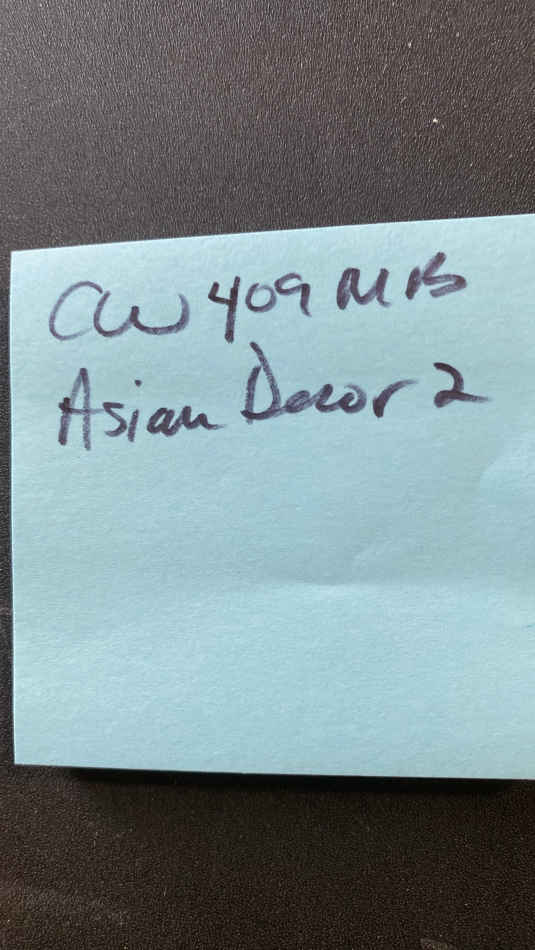 CW 409 MB
Asian Decor 2